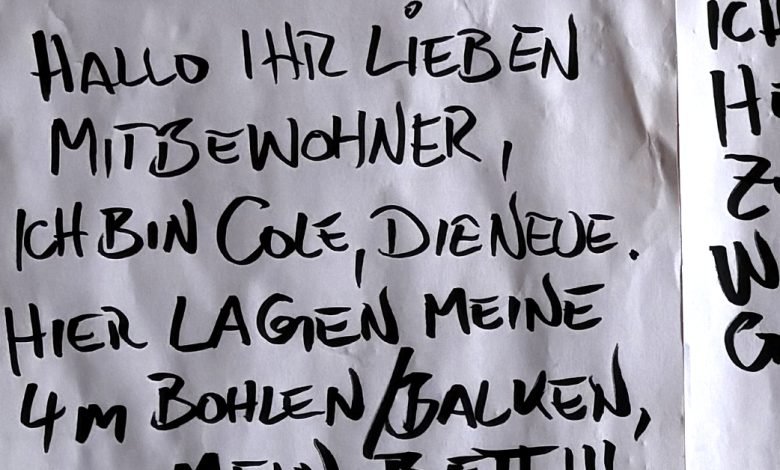 HALLO IHR LIEBEN
MITBEWOHNER,
ICH BIN COLE, DIE NEUE.
HIER LAGEN MEINE
4 m BOHLEN/BALKEN,
MEIN BETT!!!
ICH